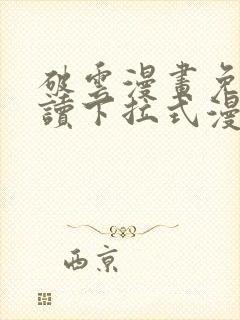 破雲漫畫免
讀下拉式漫
西京